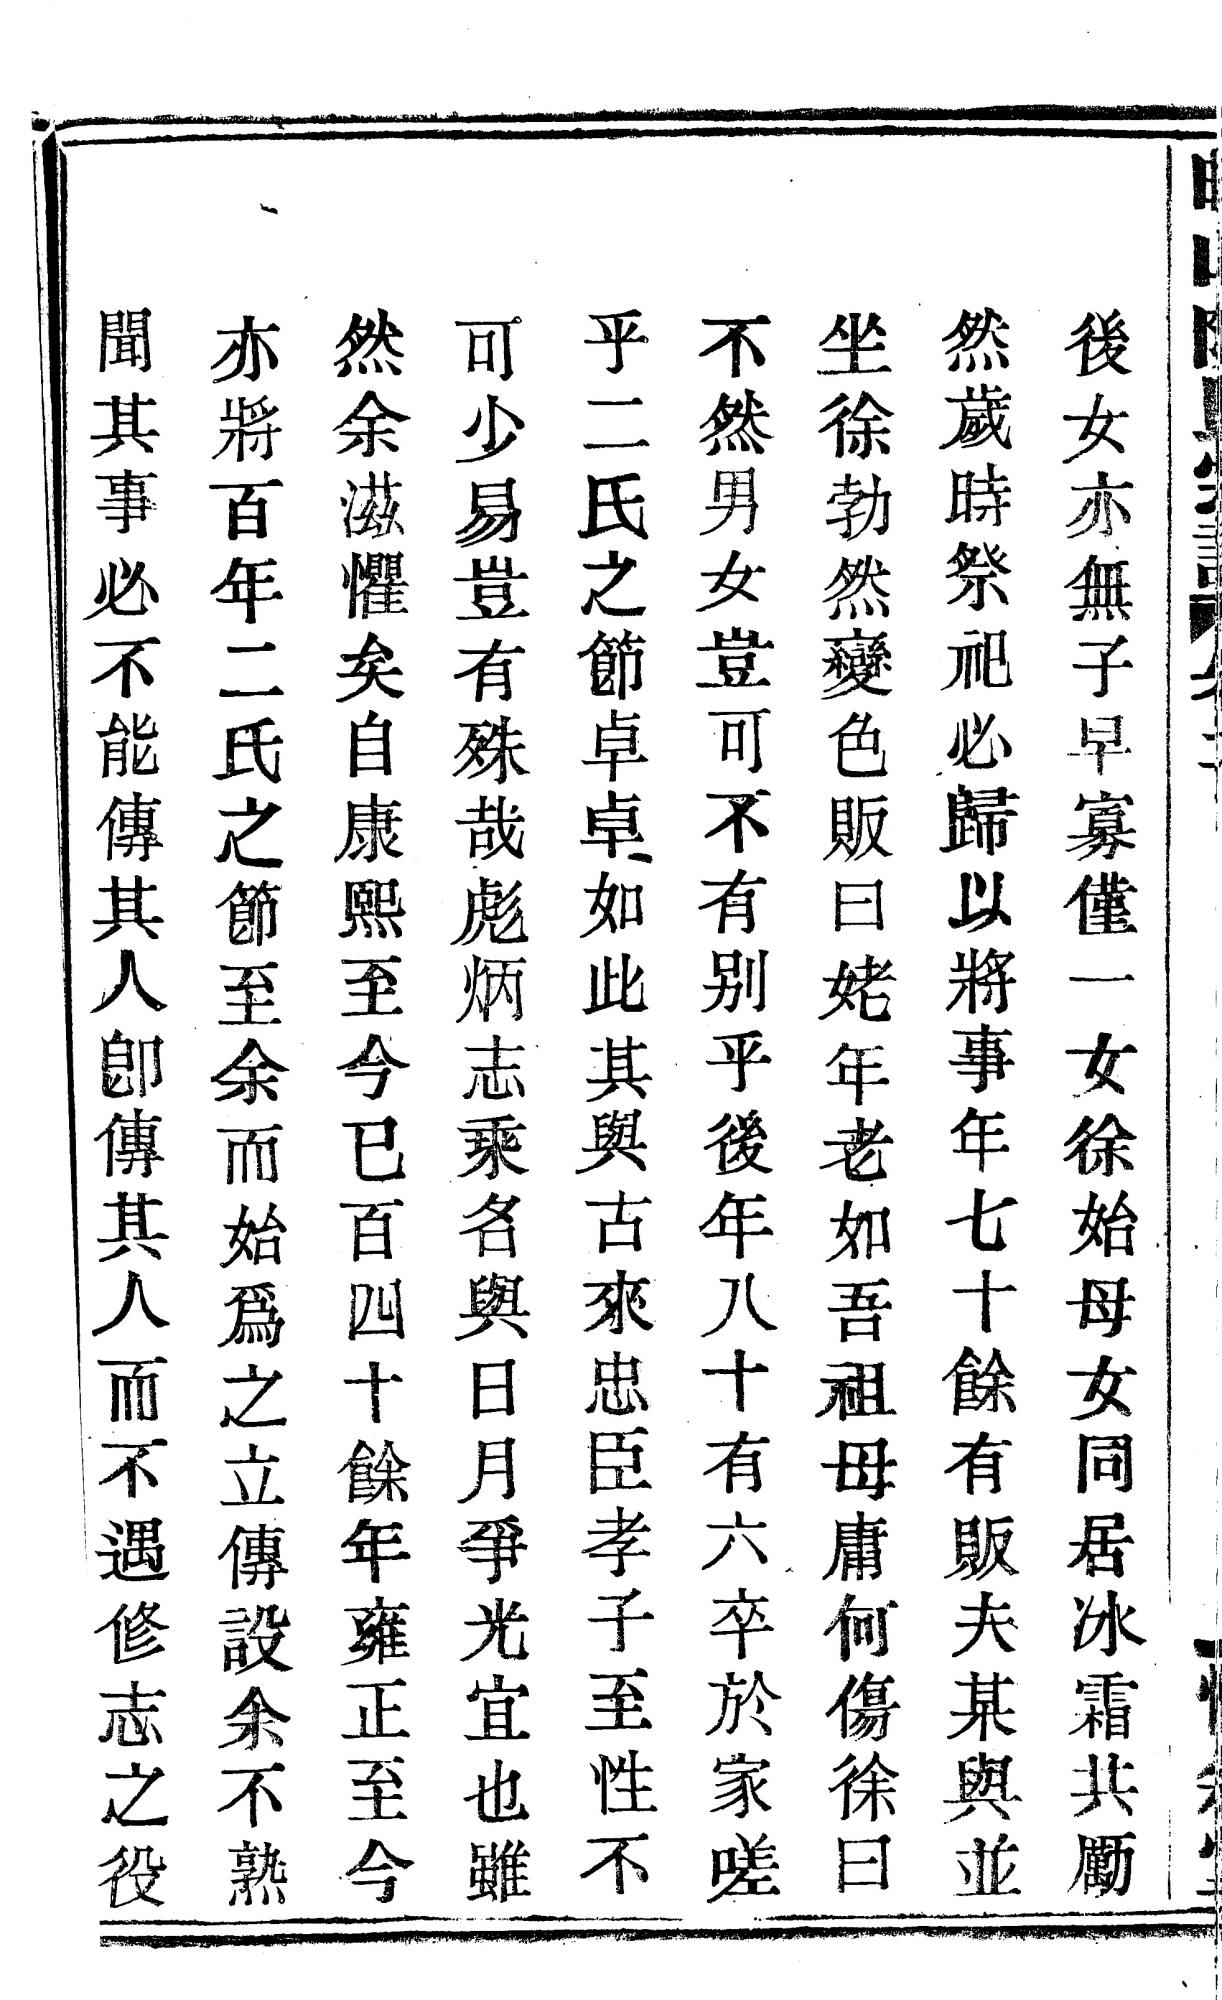 後女亦無子早寡僅一女徐始母女同居冰霜共勵
然歲時祭祀必歸以將事年七十餘有販夫某與並
坐徐勃然變色販曰姥年老如吾祖母庸何傷徐曰
不然男女豈可不有别乎後年八十有六卒於家嗟
乎二氏之節卓卓如此其與古來忠臣孝子至性不
可少易豈有殊哉彪炳志乘名與日月爭光宜也雖
然余滋懼矣自康熙至今已百四十餘年雍正至今
亦將百年二氏之節至余而始爲之立傳設余不熟
聞其事必不能傳其人卽傳其人而不遇修志之役